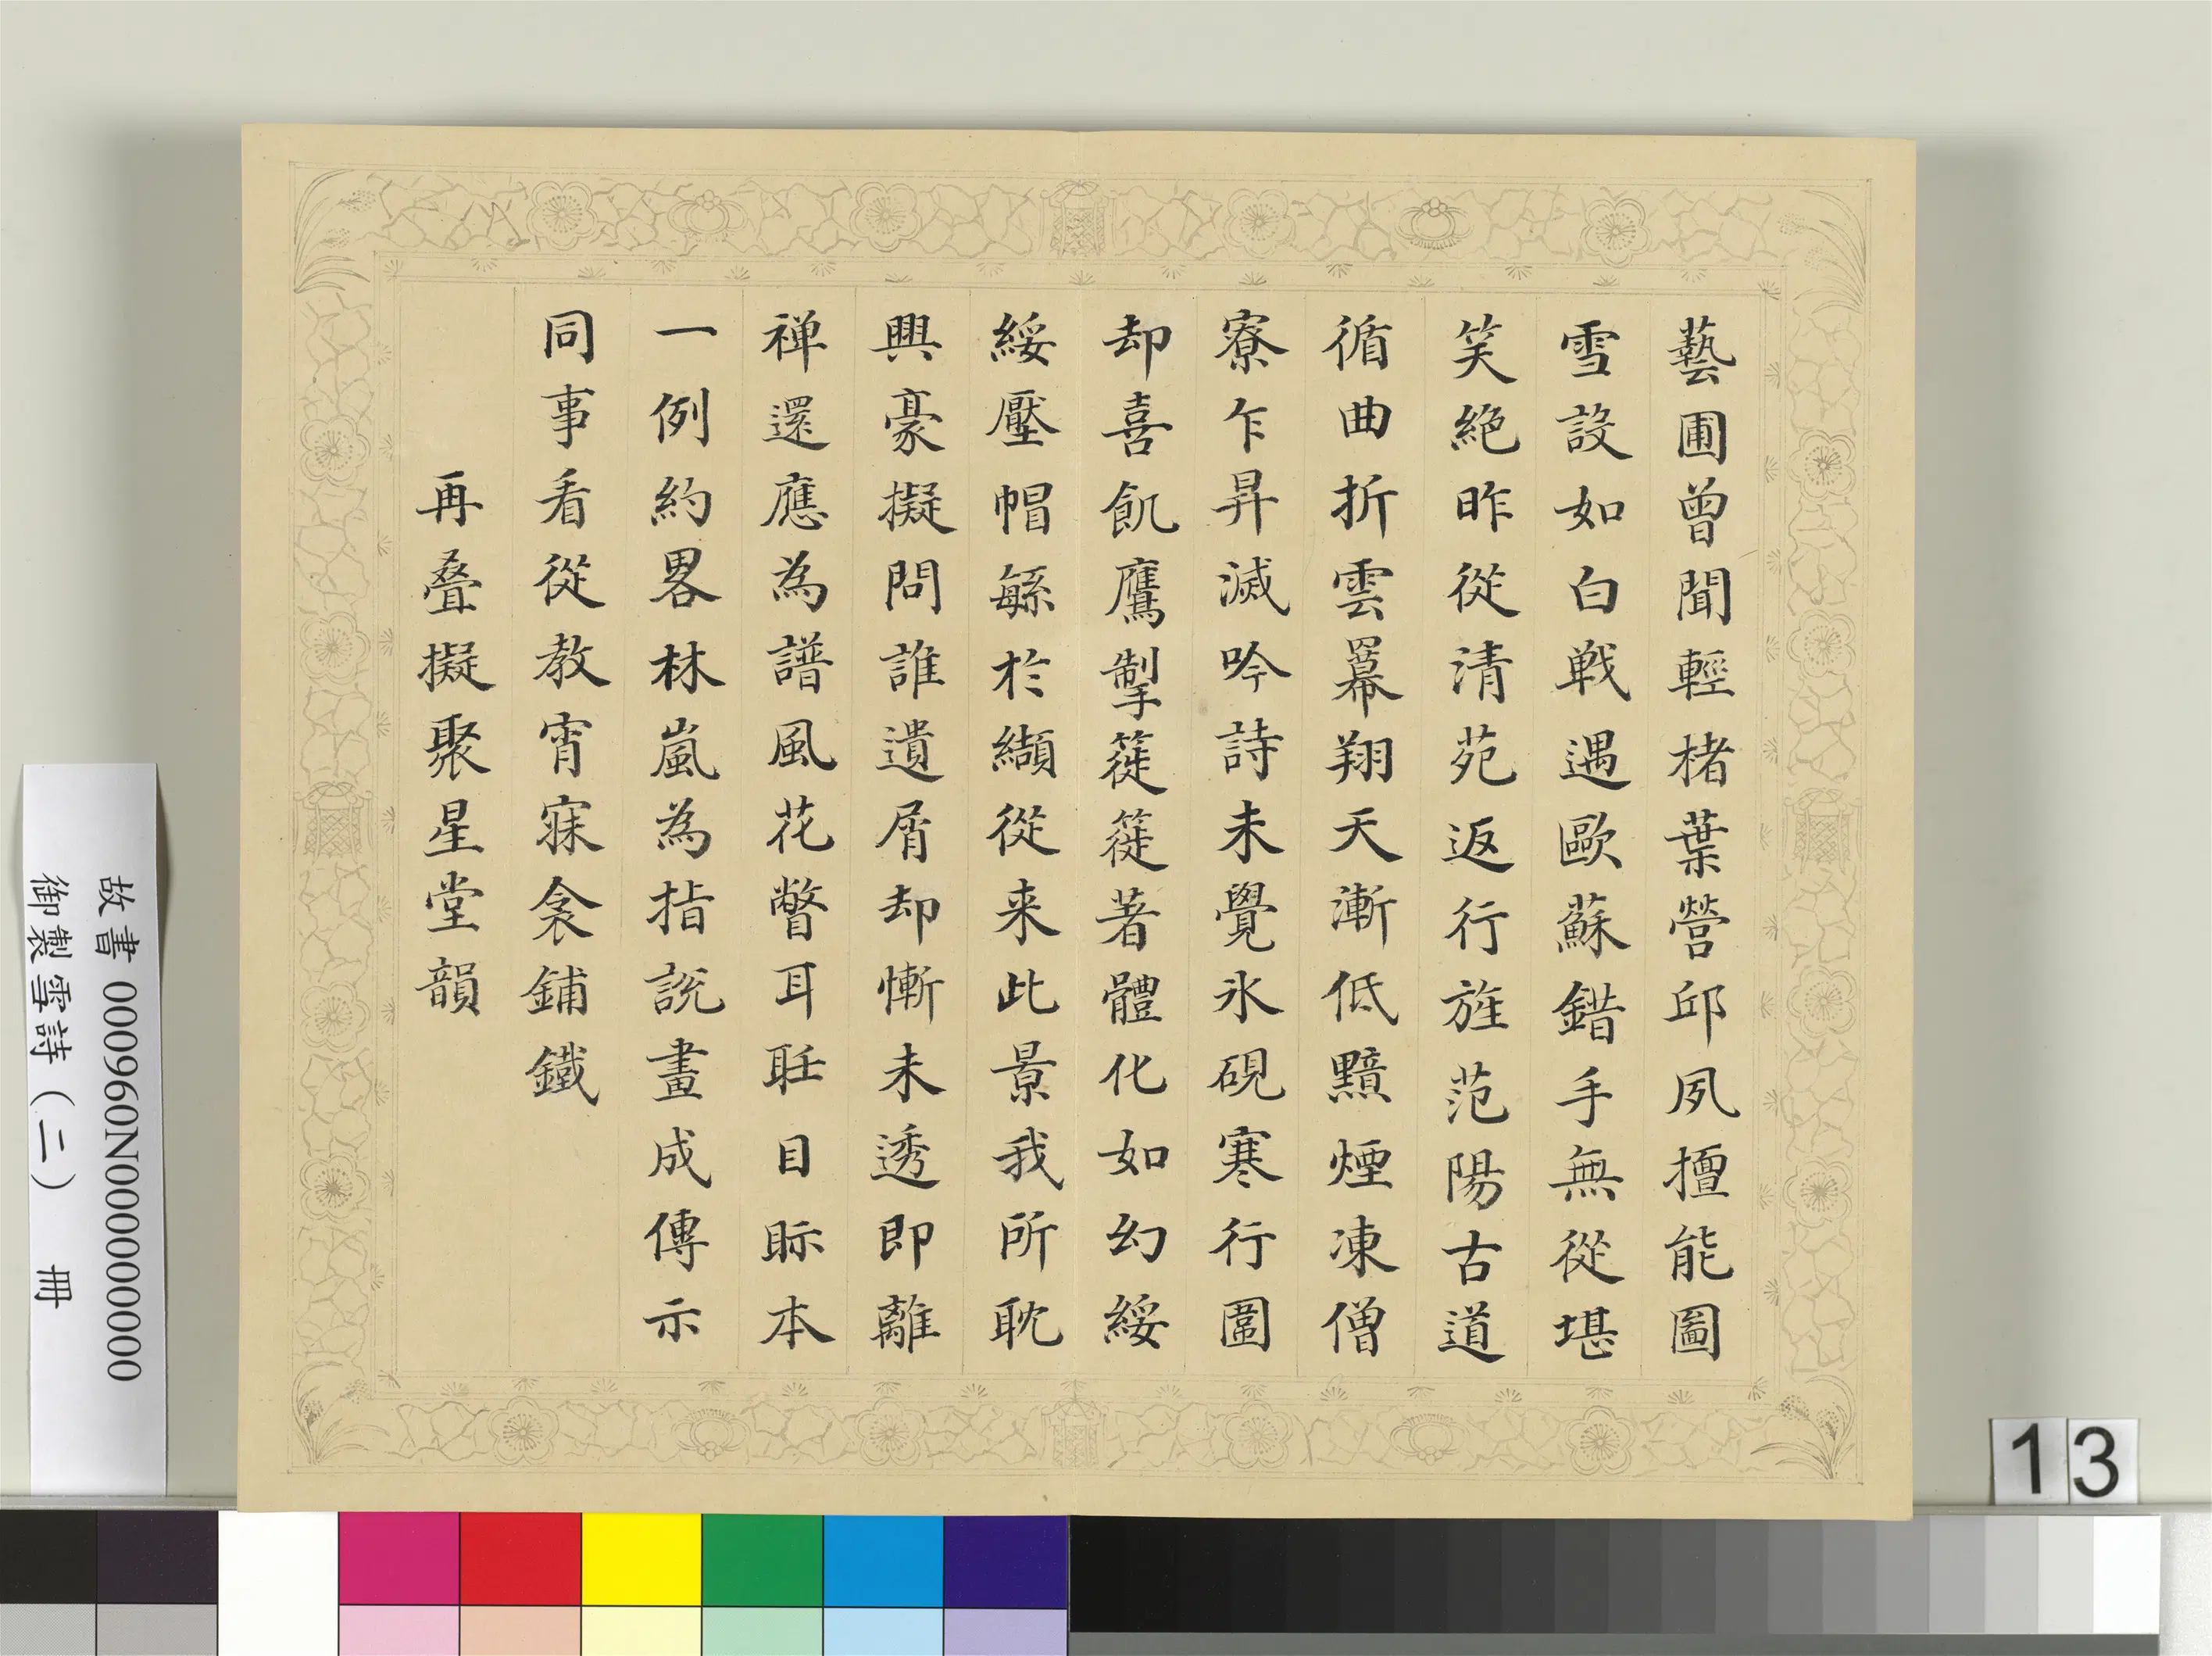 藝圃曾聞輕楮葉營邱夙擅能圖
雪設如白戰遇歐蘇錯手無從堪
笑絕昨從清苑返行旌范陽古道
循曲折雲羃翔天漸低黯煙凍僧
寮乍昇滅吟詩未覺氷硯寒行圍
却喜飢鷹掣簁簁著體化如幻綏
綏壓帽緐於纈從来此景我所耽
興豪擬問誰遺屑却慚未透即離
禅還應為譜風花瞥耳目眎本
一例約畧林嵐為指說畫成傳示
同事看從教宵寐衾鋪鐵
再叠擬聚星堂韻
故書 000960N000000000
御製雪詩（二） 冊
13